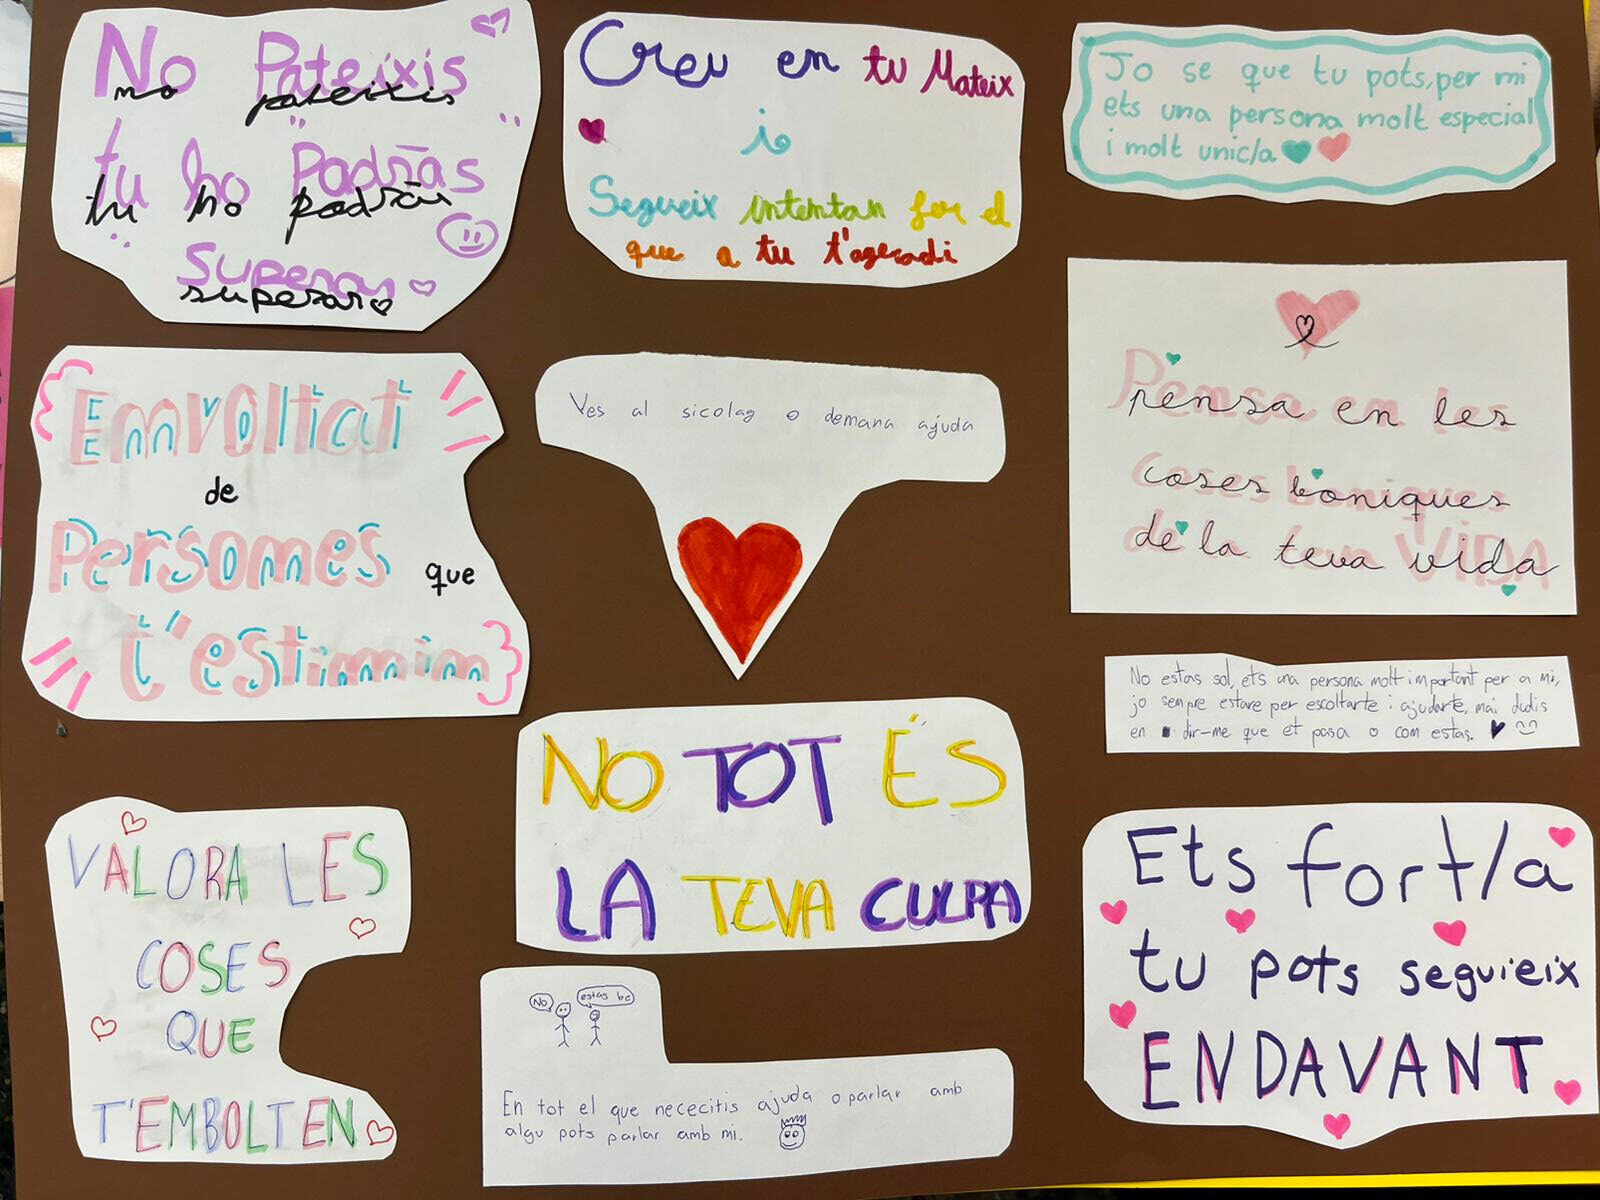 No Pateixis
no pateixis
tu ho Padrās
tu ho padrās
Superar
superar
Creu en tu Mateix
i
Segueix intentan fer el
que a tu t'ageradi
Jo se que tu pots, per mi
ets una persona molt especial
i molt unic/a
Envoltat
de
Persones que
t'estimnin
Ves al sicolag o demana ajuda
Pensa en les
coses boniques
de la teva vida
No estas sol, ets una persona molt important per a mi,
jo sempre estare per escoltarte i ajudarte, mai dudis
en dir-me que et pasa o com estas.
NO TOT ÉS
LA TEVA CULPA
VALORA LES
COSES
QUE
T'EMBOLTEN
No estas be
En tot el que nececitis ajuda o parlar amb
algu pots parlar amb mi.
Ets fort/a
tu pots seguieix
ENDAVANT